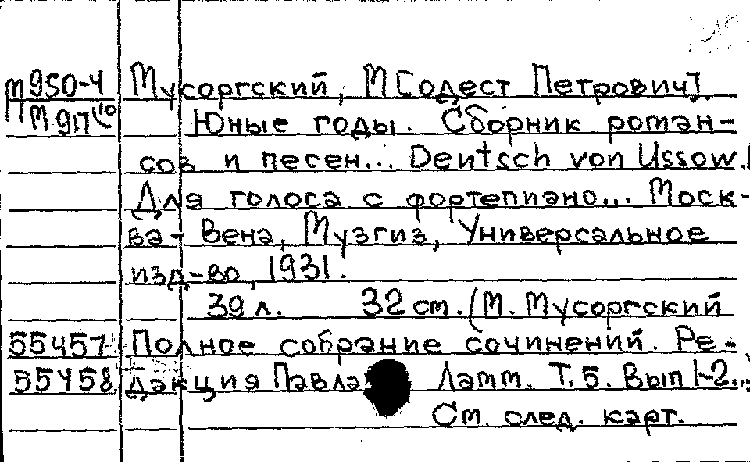 М950-4 Мусоргский, М[одест Петрович].
М917 Юные годы. Сборник роман-
сов и песен... Deutsch von Ussow.
Для голоса с фортепиано... Моск-
ва - Вена, Музгиз, Универсальное
изд-во, 1931.
39 л. 32 см. (М. Мусоргский
55457 Полное собрание сочинений. Ре-
55458 дакция Павла Ламм. Т. 5. Вып 1-2...
См. след. карт.